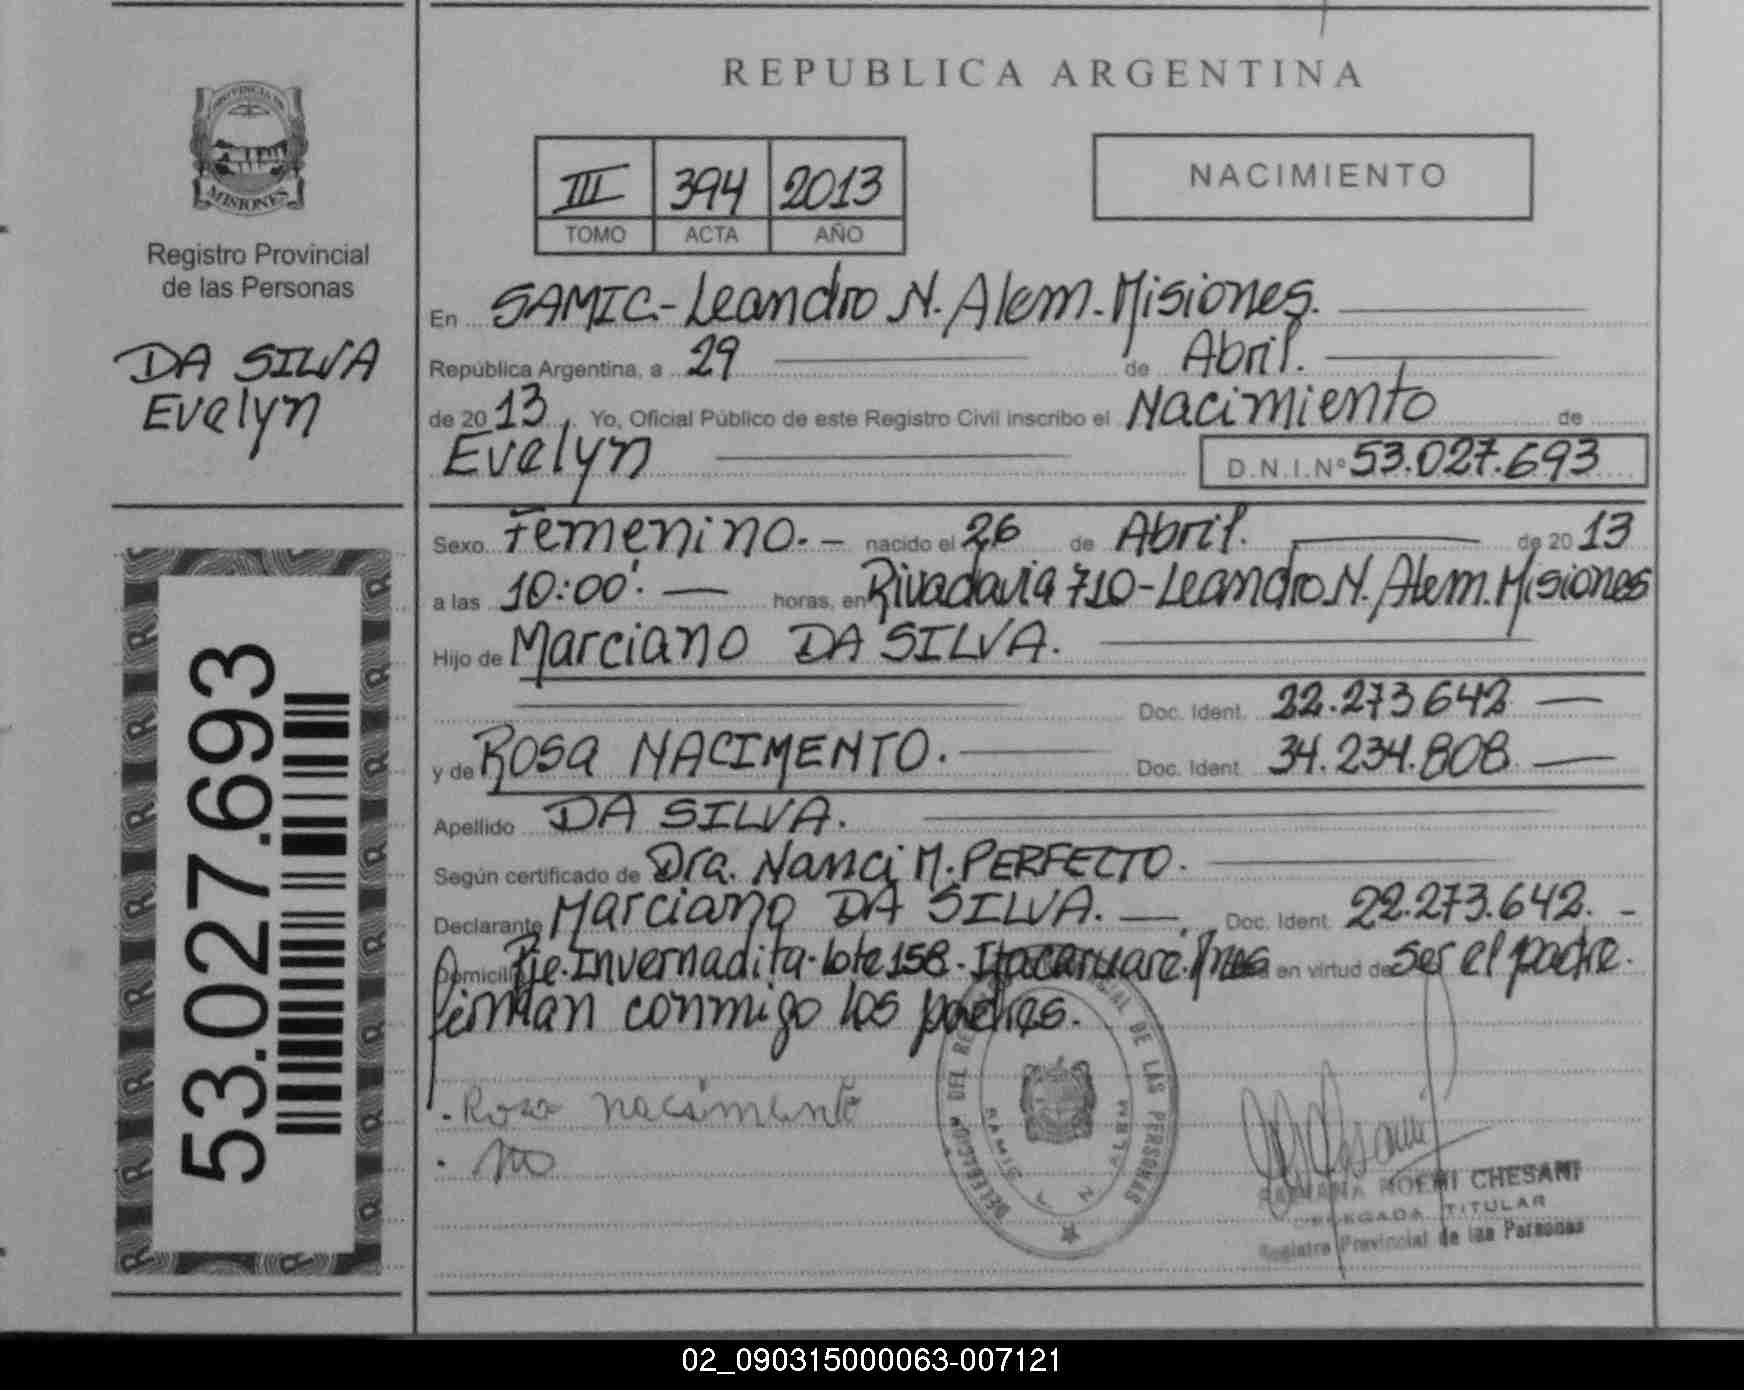 REPUBLICA ARGENTINA
PROVINCIA DE
MISIONES
Registro Provincial
de las Personas
DA SILVA
Evelyn
53.027.693
III 394 2013
TOMO ACTA AÑO
NACIMIENTO
En SAMIC-Leandro N. Alem-Misiones.
República Argentina, a 29 de Abril.
de 2013 Yo, Oficial Público de este Registro Civil inscribo el Nacimiento de
Evelyn D.N.I.Nº 53.027.693
Sexo Femenino.- nacido el 26 de Abril. de 2013
a las 10:00'. horas, en Rivadavia 710-Leandro N. Alem. Misiones
Hijo de Marciano DA SILVA.
Doc. Ident. 22.273.642
y de Rosa NACIMENTO. Doc. Ident. 34.234.808
Apellido DA SILVA.
Según certificado de Dra. Nanci M. PERFECTO.
Declarante Marciano DA SILVA. Doc. Ident. 22.273.642.-
Domicilio Pje. Invernadita-lote 158-Itacaruaré. en virtud de ser el padre.
firman conmigo los padres.
Rosa nacimento
DEL REGISTRO PROVINCIAL DE LAS PERSONAS
NOEMI CHESANI
DELEGADA TITULAR
Registro Provincial de las Personas
02_090315000063-007121